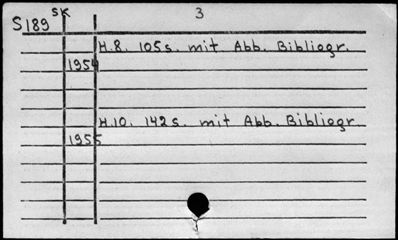 S189 SK 3
H.8. 105s. mit Abb. Bibliogr.
1954
H.10. 142s. mit Abb. Bibliogr
1955